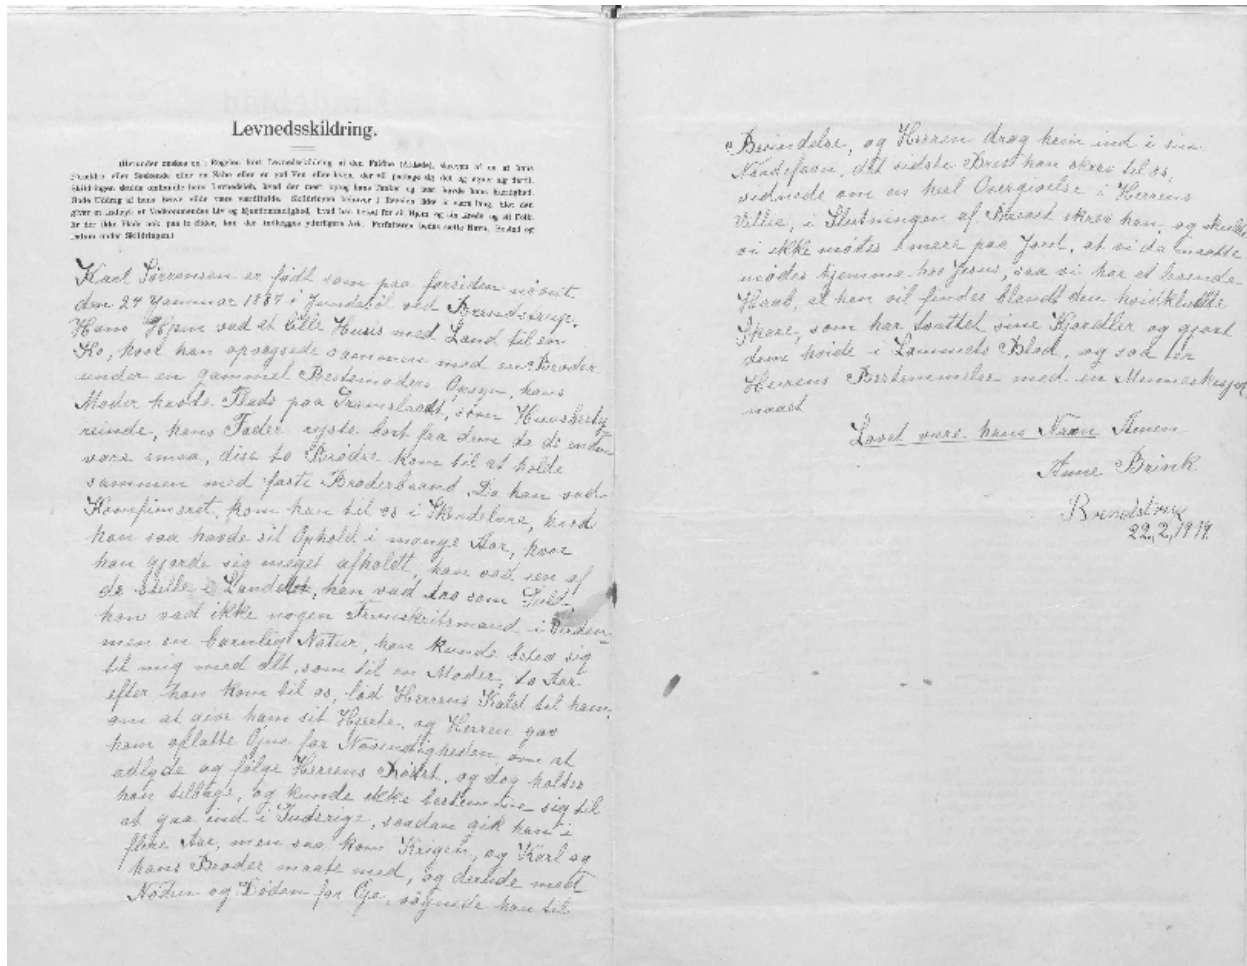 Levnedsskildring.
(Herunder ønskes en i Reglen kort Levnedsskildring af den Faldne (Afdøde), skreven af en af hans
Forældre eller Søskende eller en Nabo eller en god Ven eller hvem, der vil paatage sig det og egner sig dertil.
Skildringen skulde omhandle hans Levnedsløb, hvad der mest optog hans Tanker og især havde hans Kærlighed.
Gode Uddrag af hans Breve vilde være værdifulde. Skildringen behøver i Reglen ikke at være lang, blot den
giver et Indtryk af Vedkommendes Liv og Ejendommelighed, hvad han betød for sit Hjem og sin Kreds og sit Folk.
Er der ikke Plads nok paa to Sider, kan der indlægges yderligere Ark. Forfatteren bedes sætte Navn, Bosted og
Datum under Skildringen.)
Karl Sørrensen er født som paa forsiden nævnt
den 24 Januar 1887 i ved
Hans Hjem vad et lille Huus med Land til en
Ko, hvor han opvogsede sammen med en Broder
under en gammel Bestemoders Opsyn, hans
Moder havde Plads paa som
hans Fader rejste bort fra dem da de endnu
vare smaa, disse to Brødre kom til at holde
sammen med faste Broderbaand. Da han vad
kom han til os i hvor
han saa havde sit Ophold i mange Aar, hvor
han gjorde sig meget afholdt, han vad een af
de stille i Landet, han vad tro som Guld
han vad ikke nogen i Verden
men en barnligt Natur, han kunde betro sig
til mig med alt, som til en Moder, to Aar
efter han kom til os, lød Herrens Kald til ham,
om at give ham sit Hjerte, og Herren gav
ham opladte Øjne for Nødvendigheden om at
adlyde og følge Herrens Røst, og dog holdes
han tilbage, og kunde ikke bestemme sig til
at gaa ind i Gudsrige, saadan gik han i
flere Aar, men saa kom Krigen, og Karl og
hans Broder maate med, og derude med
Nøden og Døden for Øje, vognede han til
Besindelse, og Herren drog ham ind i sin
Naadefavn, det sidste Brev han skrev til os,
vidnede om en heel Overgivelse i Herrens
Villie, i Slutningen af Brevet skrev han, og skulde
vi ikke mødes mere paa Jord, at vi da maatte
mødes hjemme hos Jesus, saa vi har et levende
Haab, at han vil findes blandt den hvidklædte
Skare, som har tvættet sine Kjortler og gjort
dem hvide i Lammets Blod, og saa er
Herrens Bestemmelse med en Menneskesjæl
naaet
Lovet være hans Navn Amen
Anne Brink
22.,2,1919.